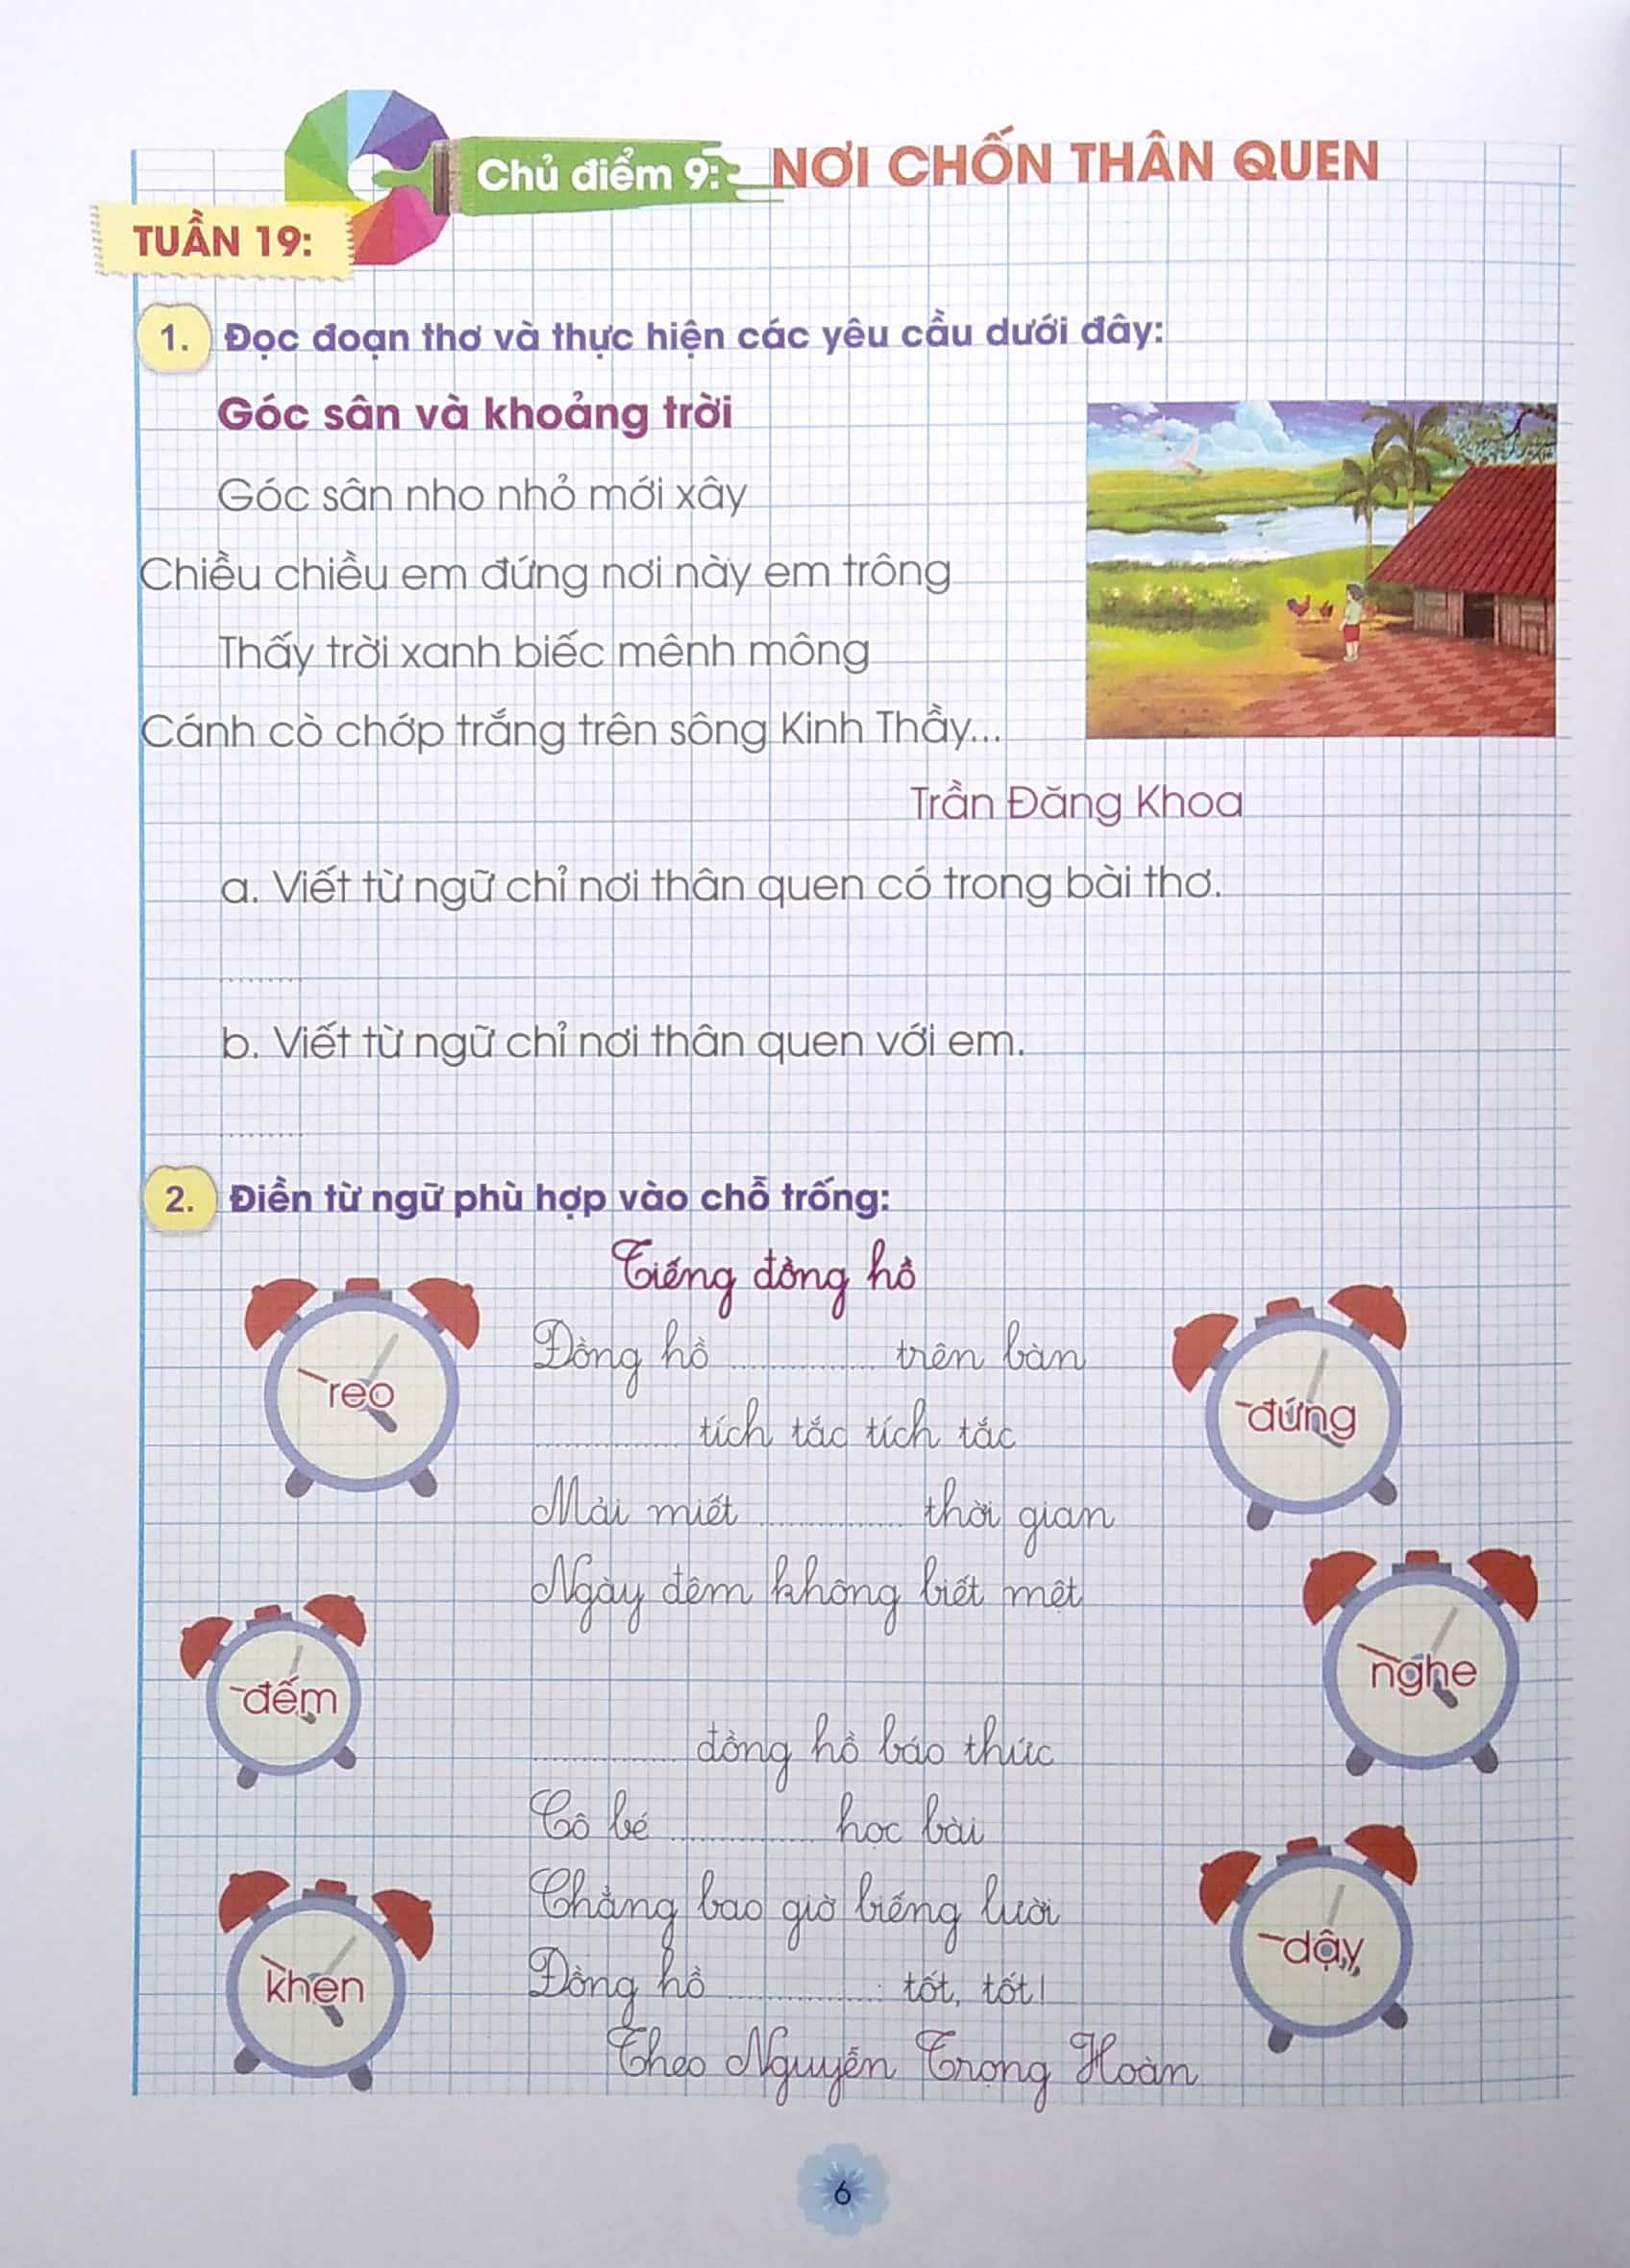 Chủ điểm 9: NƠI CHỐN THÂN QUEN
TUẦN 19:
1. Đọc đoạn thơ và thực hiện các yêu cầu dưới đây:
Góc sân và khoảng trời
Góc sân nho nhỏ mới xây
Chiều chiều em đứng nơi này em trông
Thấy trời xanh biếc mênh mông
Cánh cò chớp trắng trên sông Kinh Thầy...
Trần Đăng Khoa
a. Viết từ ngữ chỉ nơi thân quen có trong bài thơ.
........
b. Viết từ ngữ chỉ nơi thân quen với em.
........
2. Điền từ ngữ phù hợp vào chỗ trống:
Tiếng đồng hồ
Đồng hồ .............. trên bàn
.............. tích tắc tích tắc
Mải miết .............. thời gian
Ngày đêm không biết mệt
.............. đồng hồ báo thức
Cô bé .............. học bài
Chẳng bao giờ biếng lười
Đồng hồ ..............: tốt, tốt!
Theo Nguyễn Trọng Hoàn
reo
đứng
đếm
nghe
khen
dậy
6